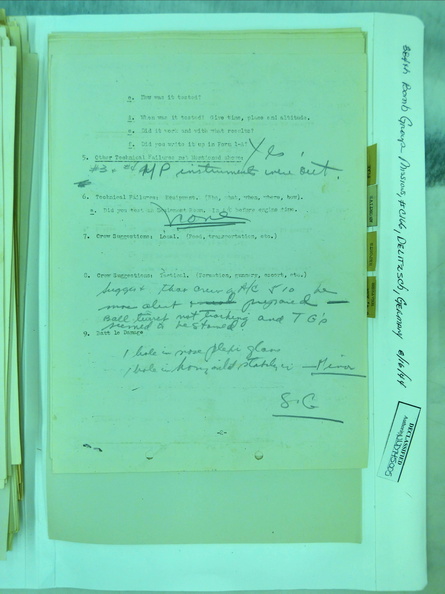 c. How was it tested?
d. When was it tested? Give time, place and altitude.
e. Did it work and with what results?
f. Did you write it up in Form 1-A? Yes
5. Other Technical Failures not Mentioned Above:
#3. A/P instruments were out.
6. Technical Failures: Equipment. (Who, what, when, where, how).
none
7. Crew Suggestions: Local. (Food, transportation, etc.)
8. Crew Suggestions: Tactical. (formation, gunnery, escort, etc.)
Suggest that crew of A/C 510 be
more alert prepared
Ball turret not tracking and T G's
seemed to be stowed
9. Battle Damage
1 hole in nose plexi glass
1 hole in horizontal stabilizer - Minor
S-G
384th Bomb Group Mission, #166, DELITZSCH, GERMANY 8/16/44
DECLASSIFIED
Authority NND745005